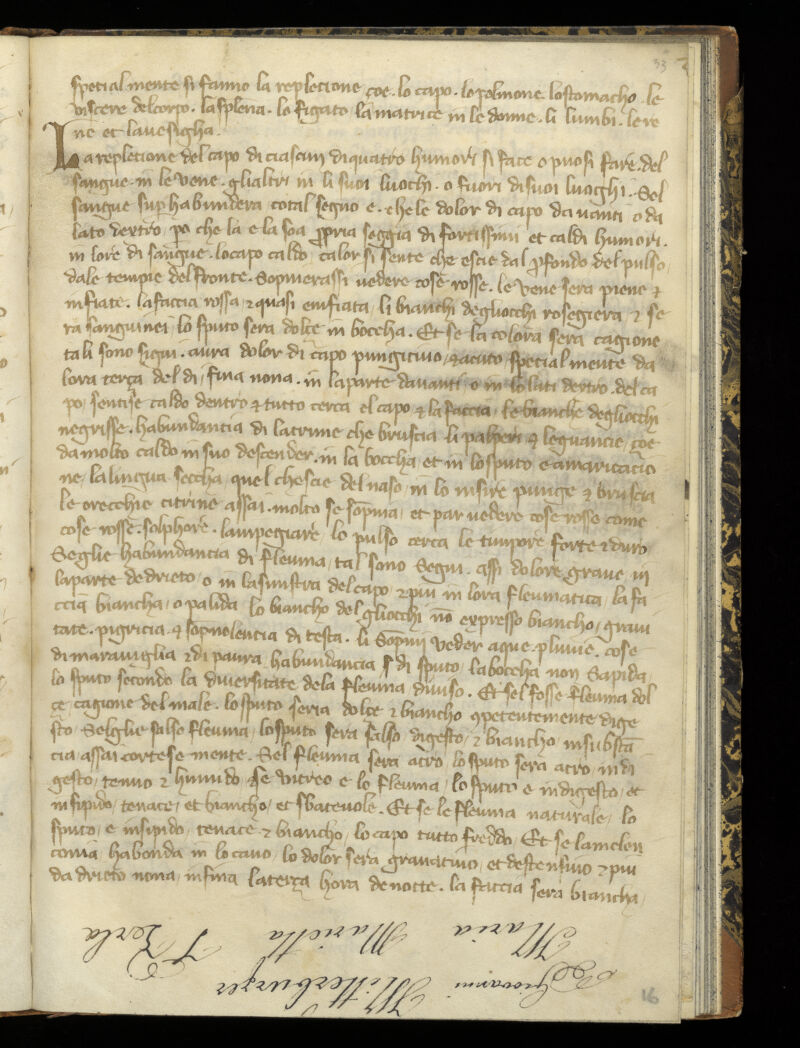 33
spetialmente si fanno la repletione çoe. lo capo. lo polmone. lo stomacho. le
viscere del corpo. la splena. lo figato la matrice in le donne. li lumbi. le re
ne et la vesigha.
La repletione del capo di ciascun di quatro humori si face o puosi fare. del
sangue in le vene. gli altri in li suoi luochi. o fuori di suoi luoghi. Sel
sangue sup habundera cotal segno e. che le dolor di capo davanti o da
lato dextro. po che la e la soa ppria seggia di fortissimi et caldi humori.
in lore di sangue. lo capo caldo, calor si sente che escie dal pfondo del pulso,
dale tempie del fronte. Sopnierassi vedere cose rosse. le vene sera piene &
infiate. la faccia rossa, & quasi enfiata, li bianchi degliocchi rosegiera, & se
ra sanguinei, lo sputo sera dolce in boccha. Et se la colora sera cagione
tali sono signi. aura dolor di capo pungitivo, & acuto, spetialmente da
lora terça del di, fina nona. in la parte davanti o in lo lati dextro. del ca
po, sentise caldo dentro & tutto cerca el capo & la faccia, le bianche degliocchi
negrisse. habundantia di lacrime che bruscia li palperi & le guancie, çoe
da molto caldo in suo descender. in la boccha et in lo sputo e amaricatio
ne, la lingua seccha, quel che scie del naso, in lo insire punge & bruscia
le orecchie citrine assai. molto se sopnia, et par vedere cose rosse come
cose rosse. solphore. lampegiare, lo pulso cerca le timpore forte & duro
Seglie habundantia di fleuma, tal sono segni. assi dolore grave in
la parte dedrieto, o in la sinistra del capo & piu in lora fleumatica, la fa
ccia biancha, o palida lo biancho del gliocchi no expresso biancho, gravi
tate. pigricia & sopnolentia di testa. li sopnij veder aque. pluvie. cose
di maraviglia & di paura habundancia di sputo, la boccha non sapida,
lo sputo secondo la diversitate dela fleuma diviso. Et sel fosse fleuma dol
çe, cagione del male. lo sputo seria dolce & biancho 9petentemente dige
sto. Selglie salso fleuma, lo sputo sera salso digesto, & biancho in substa
cia assai cortesemente. Sel fleuma sera acro, lo sputo sera acro, indi
gesto, tenuo & humido, & se vitreo e lo fleuma, lo sputo e indigesto, et
insipido, tenace, et biancho, et sbatevole. Et se le fleuma naturale, lo
sputo, e insipido, tenace & biancho, lo capo tutto freddo, Et se la melen
conia, habonda in lo cavo, lo dolor sera gravativo, et destensivo & piu
da drieto nona, infina la terça hora de notte. la faccia sera biancha,
Giovanni Mitterburger
Maria Marietta F Zerla
16